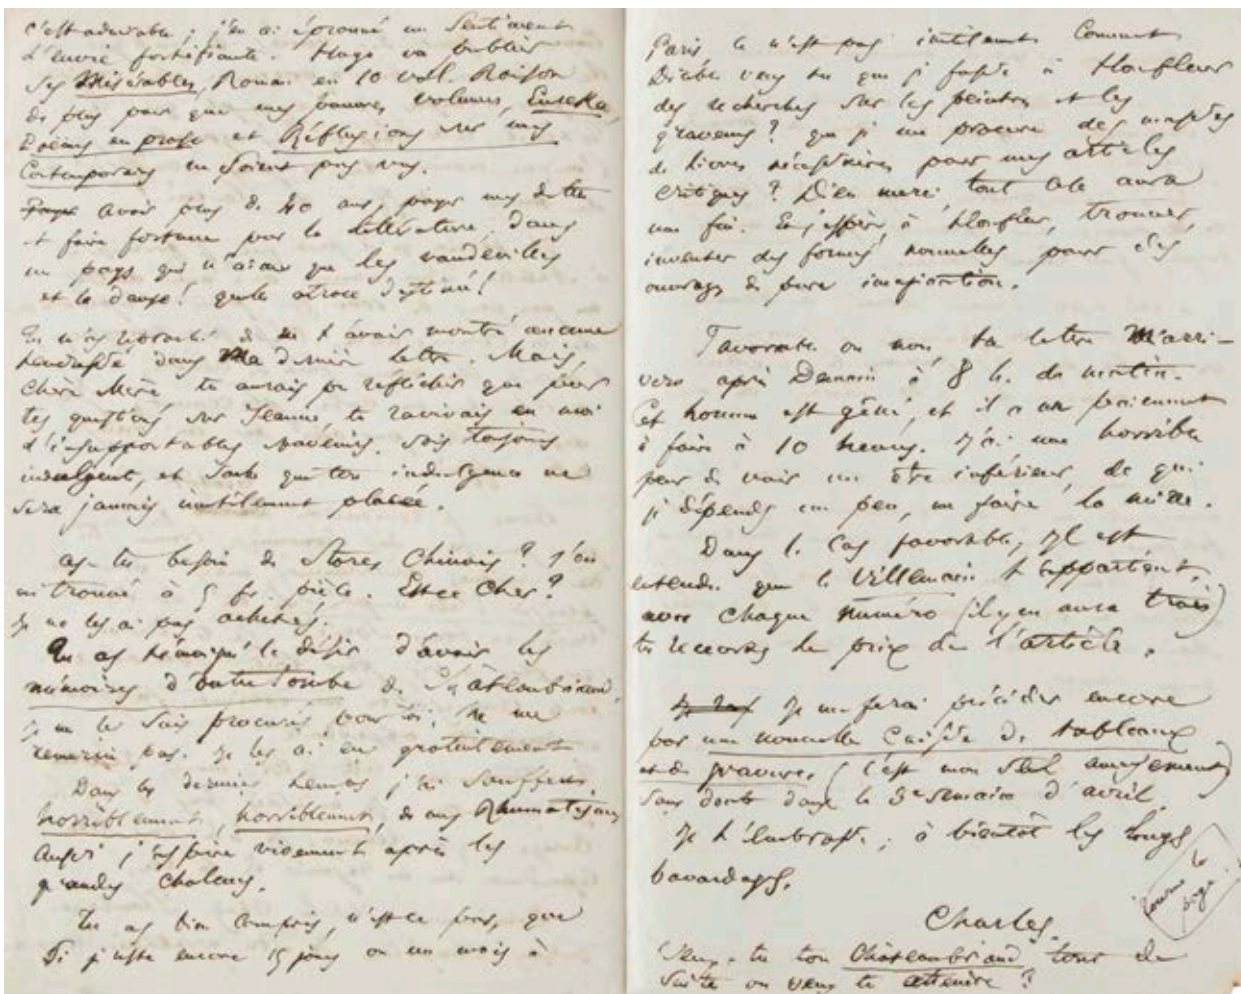 c'est admirable ; j'en ai éprouvé un sentiment
d'envie fortifiante. Hugo va publier
ses Misérables, Roman en 10 vol. Raison
de plus pour que mes pauvres volumes, Eureka,
Poèmes en prose et Réflexions sur mes
Contemporains ne soient pas vus.
Payer Avoir plus de 40 ans, payer mes dettes
et faire fortune par la littérature, dans
un pays qui n'aime que les vaudevilles
et la danse ! quelle atroce destinée !
Tu m'as reproché de ne t'avoir montré aucune
tendresse dans Ma dernière lettre. Mais,
chère Mère, tu aurais pu réfléchir que par
tes questions sur Jeanne tu ravivais en moi
d'insupportables souvenirs. Sois toujours
indulgente, et sache que ton indulgence ne
sera jamais inutilement placée.
as-tu besoin de Stores Chinois ? J'en
ai trouvé à 5 fr. pièce. Est-ce Cher ?
Je ne les ai pas achetés.
Tu as témoigné le désir d'avoir les
mémoires d'outre Tombe de Châteaubriand,
je me les suis procurés pour toi. Ne me
remercie pas. Je les ai eu gratuitement
Dans les derniers temps j'ai souffert
horriblement, horriblement, de mes Rhumatismes
Aussi j'aspire vivement après les
grandes Chaleurs.
Tu as bien compris, n'est-ce pas, que
si je reste encore 15 jours ou un mois à
Paris ce n'est pas inutilement. Comment
Diable veux-tu que je fasse à Honfleur
des recherches sur les peintres et les
graveurs ? que je me procure des masses
de livres nécessaires pour mes articles
critiques ? Dieu merci, tout cela aura
une fin. Et j'espère, à Honfleur, trouver,
inventer des formes nouvelles pour des
ouvrages de pure imagination.
Favorable ou non, ta lettre M'arri-
vera après Demain à 8 h. du matin.
Cet homme est gêné, et il a un paiement
à faire à 10 heures. J'ai une horrible
peur de voir un être inférieur, de qui
je dépends un peu, me faire la mine.
Dans le cas favorable, Il est
entendu que le Villemain t'appartient,
avec chaque numéro (il y en aura trois)
tu recevras le prix de l'article.
Je me ferai précéder encore
par une nouvelle Caisse de tableaux
et de gravures (c'est mon seul amusement)
sans doute dans la 3e semaine d'avril.
Je t'embrasse ; à bientôt les longs
bavardages.
tourne la
page
Charles.
Veux-tu ton Châteaubriand tout de
suite ou veux-tu attendre ?